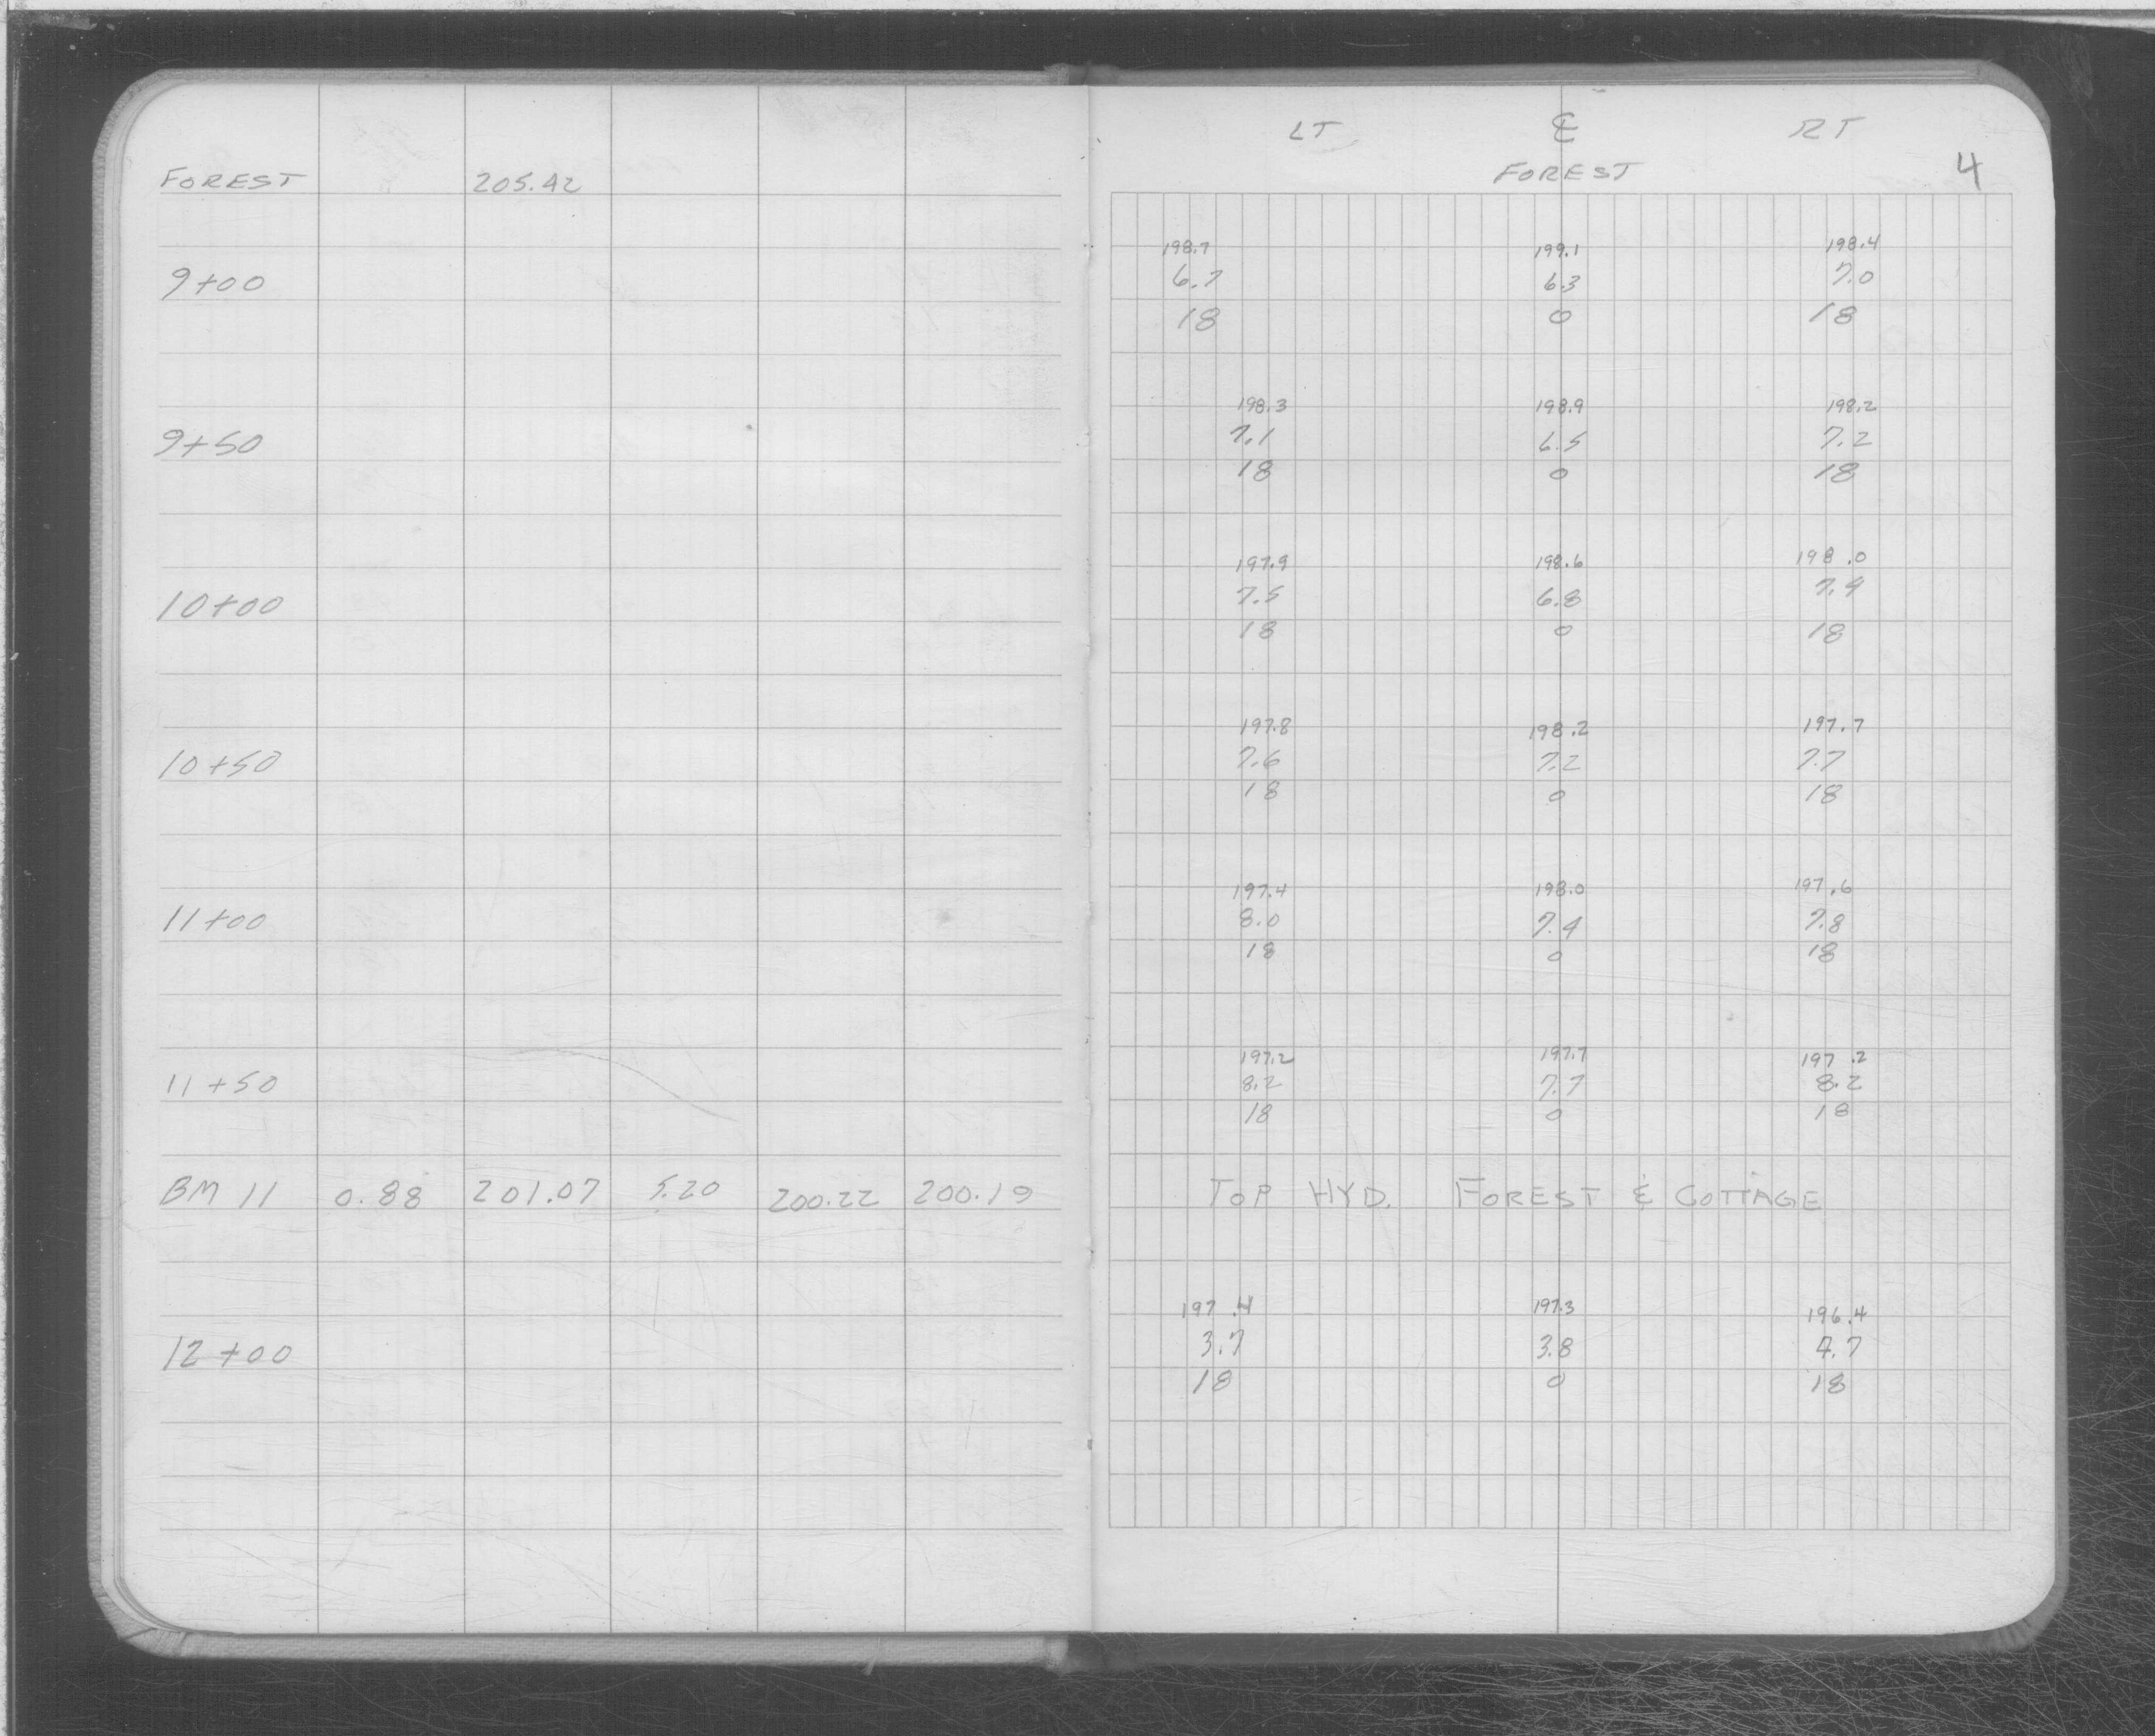 LT ℄ RT
FOREST 205.42 FOREST 4
198.7 199.1 198.4
9+00 6.7 6.3 7.0
18 0 18
198.3 198.9 198.2
9+50 7.1 6.5 7.2
18 0 18
197.9 198.6 198.0
10+00 7.5 6.8 7.4
18 0 18
197.8 198.2 197.7
10+50 7.6 7.2 7.7
18 0 18
197.4 198.0 197.6
11+00 8.0 7.4 7.8
18 0 18
197.2 197.7 197.2
11+50 8.2 7.7 8.2
18 0 18
BM 11 0.88 201.07 5.20 200.22 200.19 TOP HYD. FOREST & COTTAGE
197.4 197.3 196.4
12+00 3.7 3.8 4.7
18 0 18